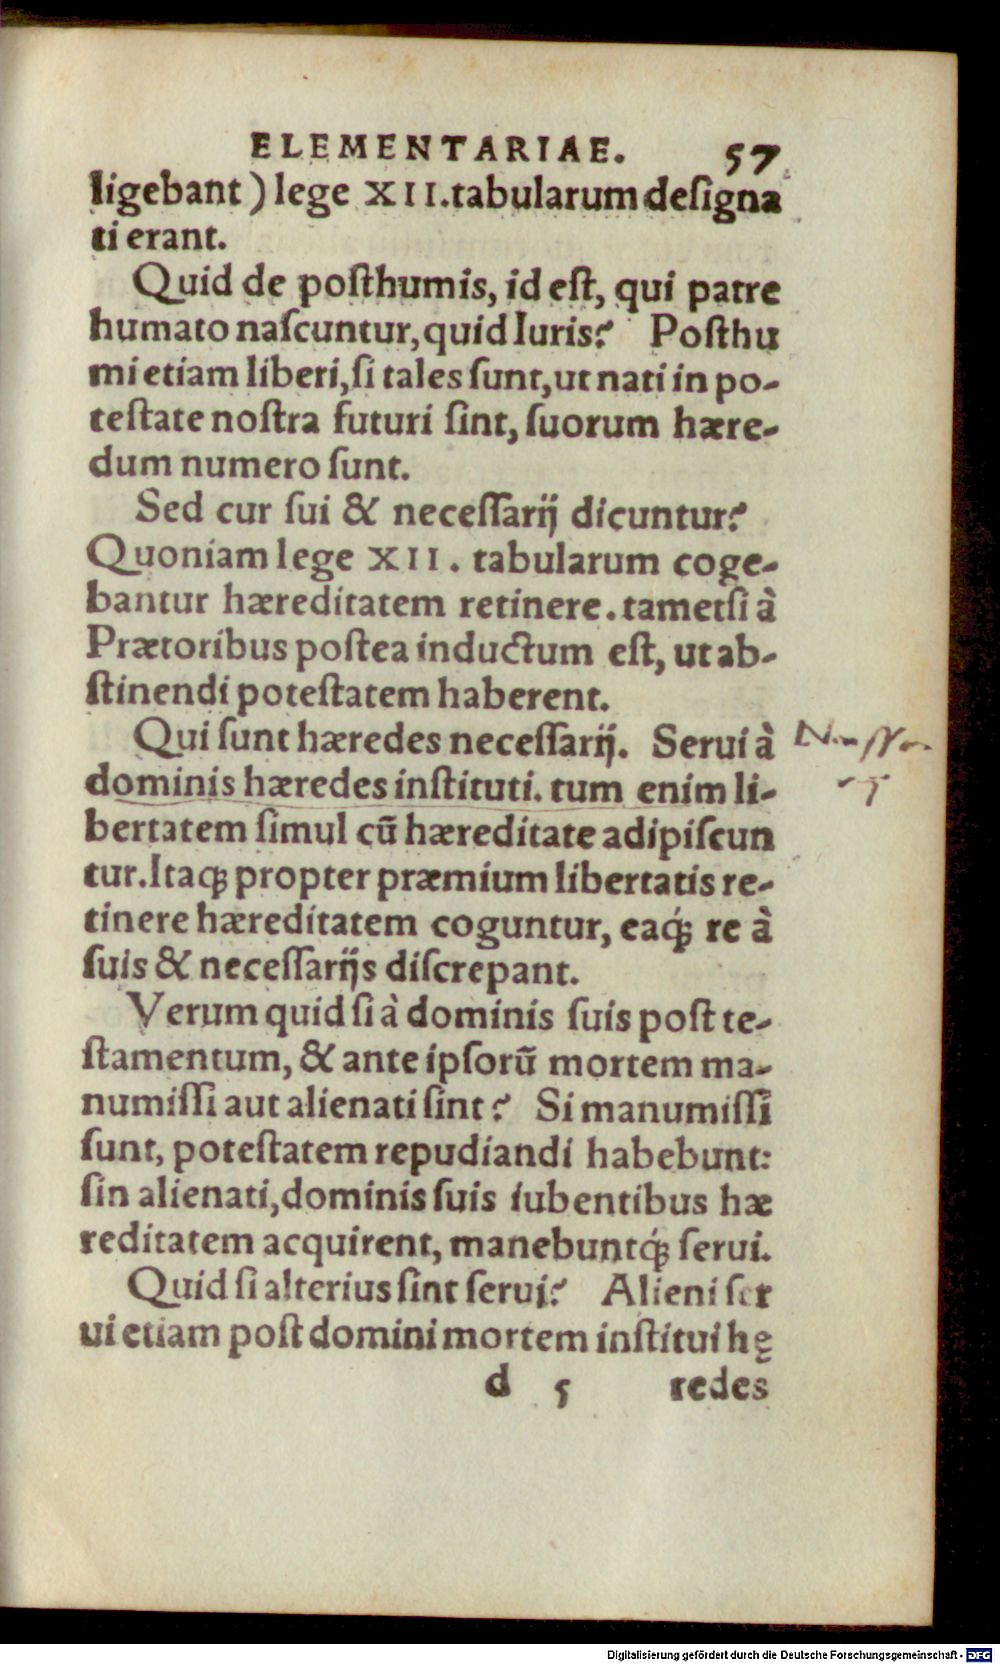 ELEMENTARIAE. 57
ligebant) lege XII. tabularum deſigna
ti erant.
Quid de poſthumis, id eſt, qui patre
humato naſcuntur, quid Iuris? Poſthu
mi etiam liberi, ſi tales ſunt, ut nati in po-
teſtate noſtra futuri ſint, ſuorum hære-
dum numero ſunt.
Sed cur ſui & neceſſarij dicuntur?
Quoniam lege XII. tabularum coge-
bantur hæreditatem retinere. tametſi à
Prætoribus poſtea inductum eſt, ut ab-
ſtinendi poteſtatem haberent.
Qui ſunt hæredes neceſſarij. Serui à
dominis hæredes inſtituti. tum enim li-
bertatem ſimul cũ hæreditate adipiſcun
tur. Itaqꝫ propter præmium libertatis re-
tinere hæreditatem coguntur, eaq́ꝫ re à
ſuis & neceſſarijs diſcrepant.
Verum quid ſi à dominis ſuis poſt te-
ſtamentum, & ante ipſorũ mortem ma-
numiſſi aut alienati ſint? Si manumiſſi
ſunt, poteſtatem repudiandi habebunt:
ſin alienati, dominis ſuis iubentibus hæ
reditatem acquirent, manebuntq́ꝫ ſerui.
Quid ſi alterius ſint ſerui? Alieni ſer
ui etiam poſt domini mortem inſtitui hę
d 5 redes
Digitalisierung gefördert durch die Deutsche Forschungsgemeinschaft - DFG